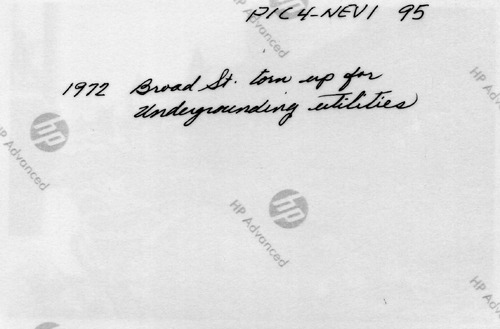 PIC4-NEV1 95
1972 Broad St. torn up for
Undergrounding utilities
HP Advanced
hp
HP Advanced
hp
HP Advanced
HP Advanced
HP Advanced